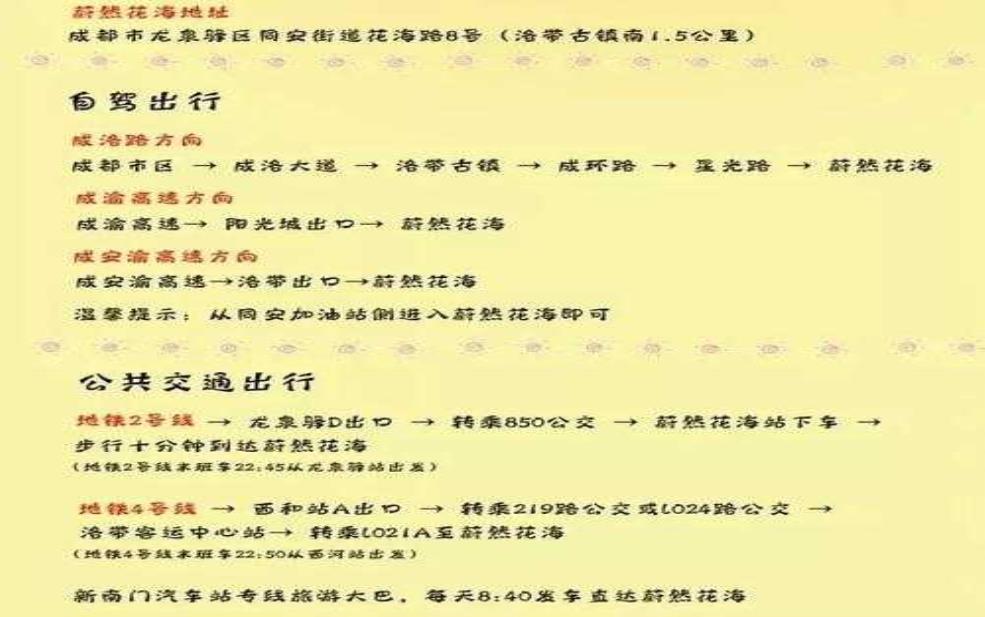 蔚然花海地址
成都市龙泉驿区同安街道花海路8号（洛带古镇南1.5公里）
自驾出行
成洛路方向
成都市区 → 成洛大道 → 洛带古镇 → 成环路 → 星光路 → 蔚然花海
成渝高速方向
成渝高速→ 阳光城出口→ 蔚然花海
成安渝高速方向
成安渝高速→洛带出口→蔚然花海
温馨提示：从同安加油站侧进入蔚然花海即可
公共交通出行
地铁2号线 → 龙泉驿D出口 → 转乘850公交 → 蔚然花海站下车 →
步行十分钟到达蔚然花海
（地铁2号线末班车22:45从龙泉驿站出发）
地铁4号线 → 西和站A出口 → 转乘219路公交或L024路公交 →
洛带客运中心站→ 转乘L021A至蔚然花海
（地铁4号线末班车22:50从西河站出发）
新南门汽车站专线旅游大巴，每天8:40发车直达蔚然花海